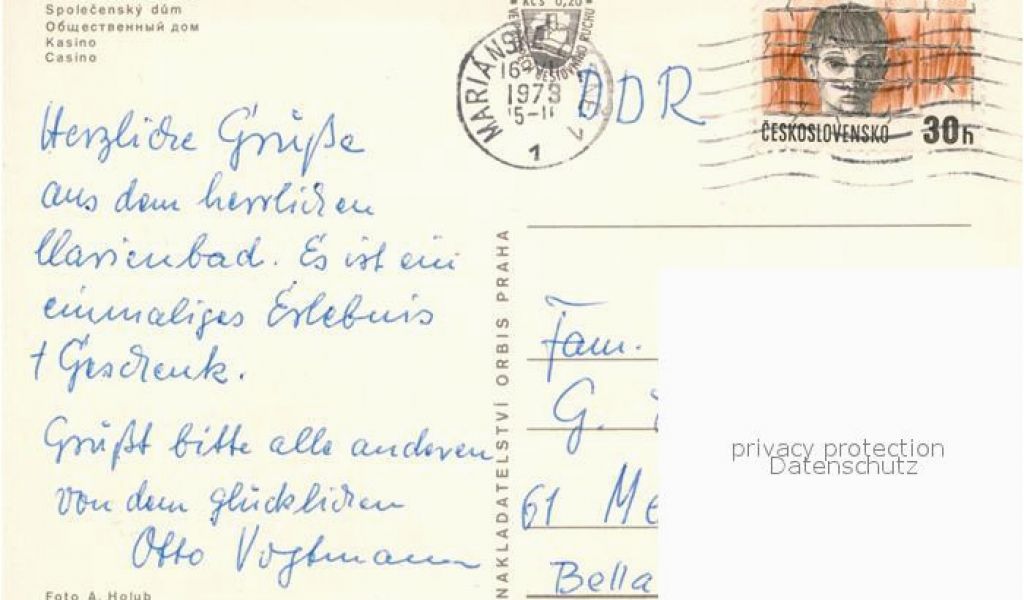 Společenský dům
Общественный дом
Kasino
Casino
Herzliche Grüße
aus dem herrlichen
Marienbad. Es ist ein
einmaliges Erlebnis
+ Geschenk.
Grüßt bitte alle anderen
von dem glücklichen
Otto Vogtmann
Foto A. Holub
NAKLADATELSTVÍ ORBIS PRAHA
KČS 0,20
MARIÁNSKÉ
16
1979
15-11
1
DDR
ČESKOSLOVENSKO 30h
Fam.
G.
61 Me
Bella
privacy protection
Datenschutz